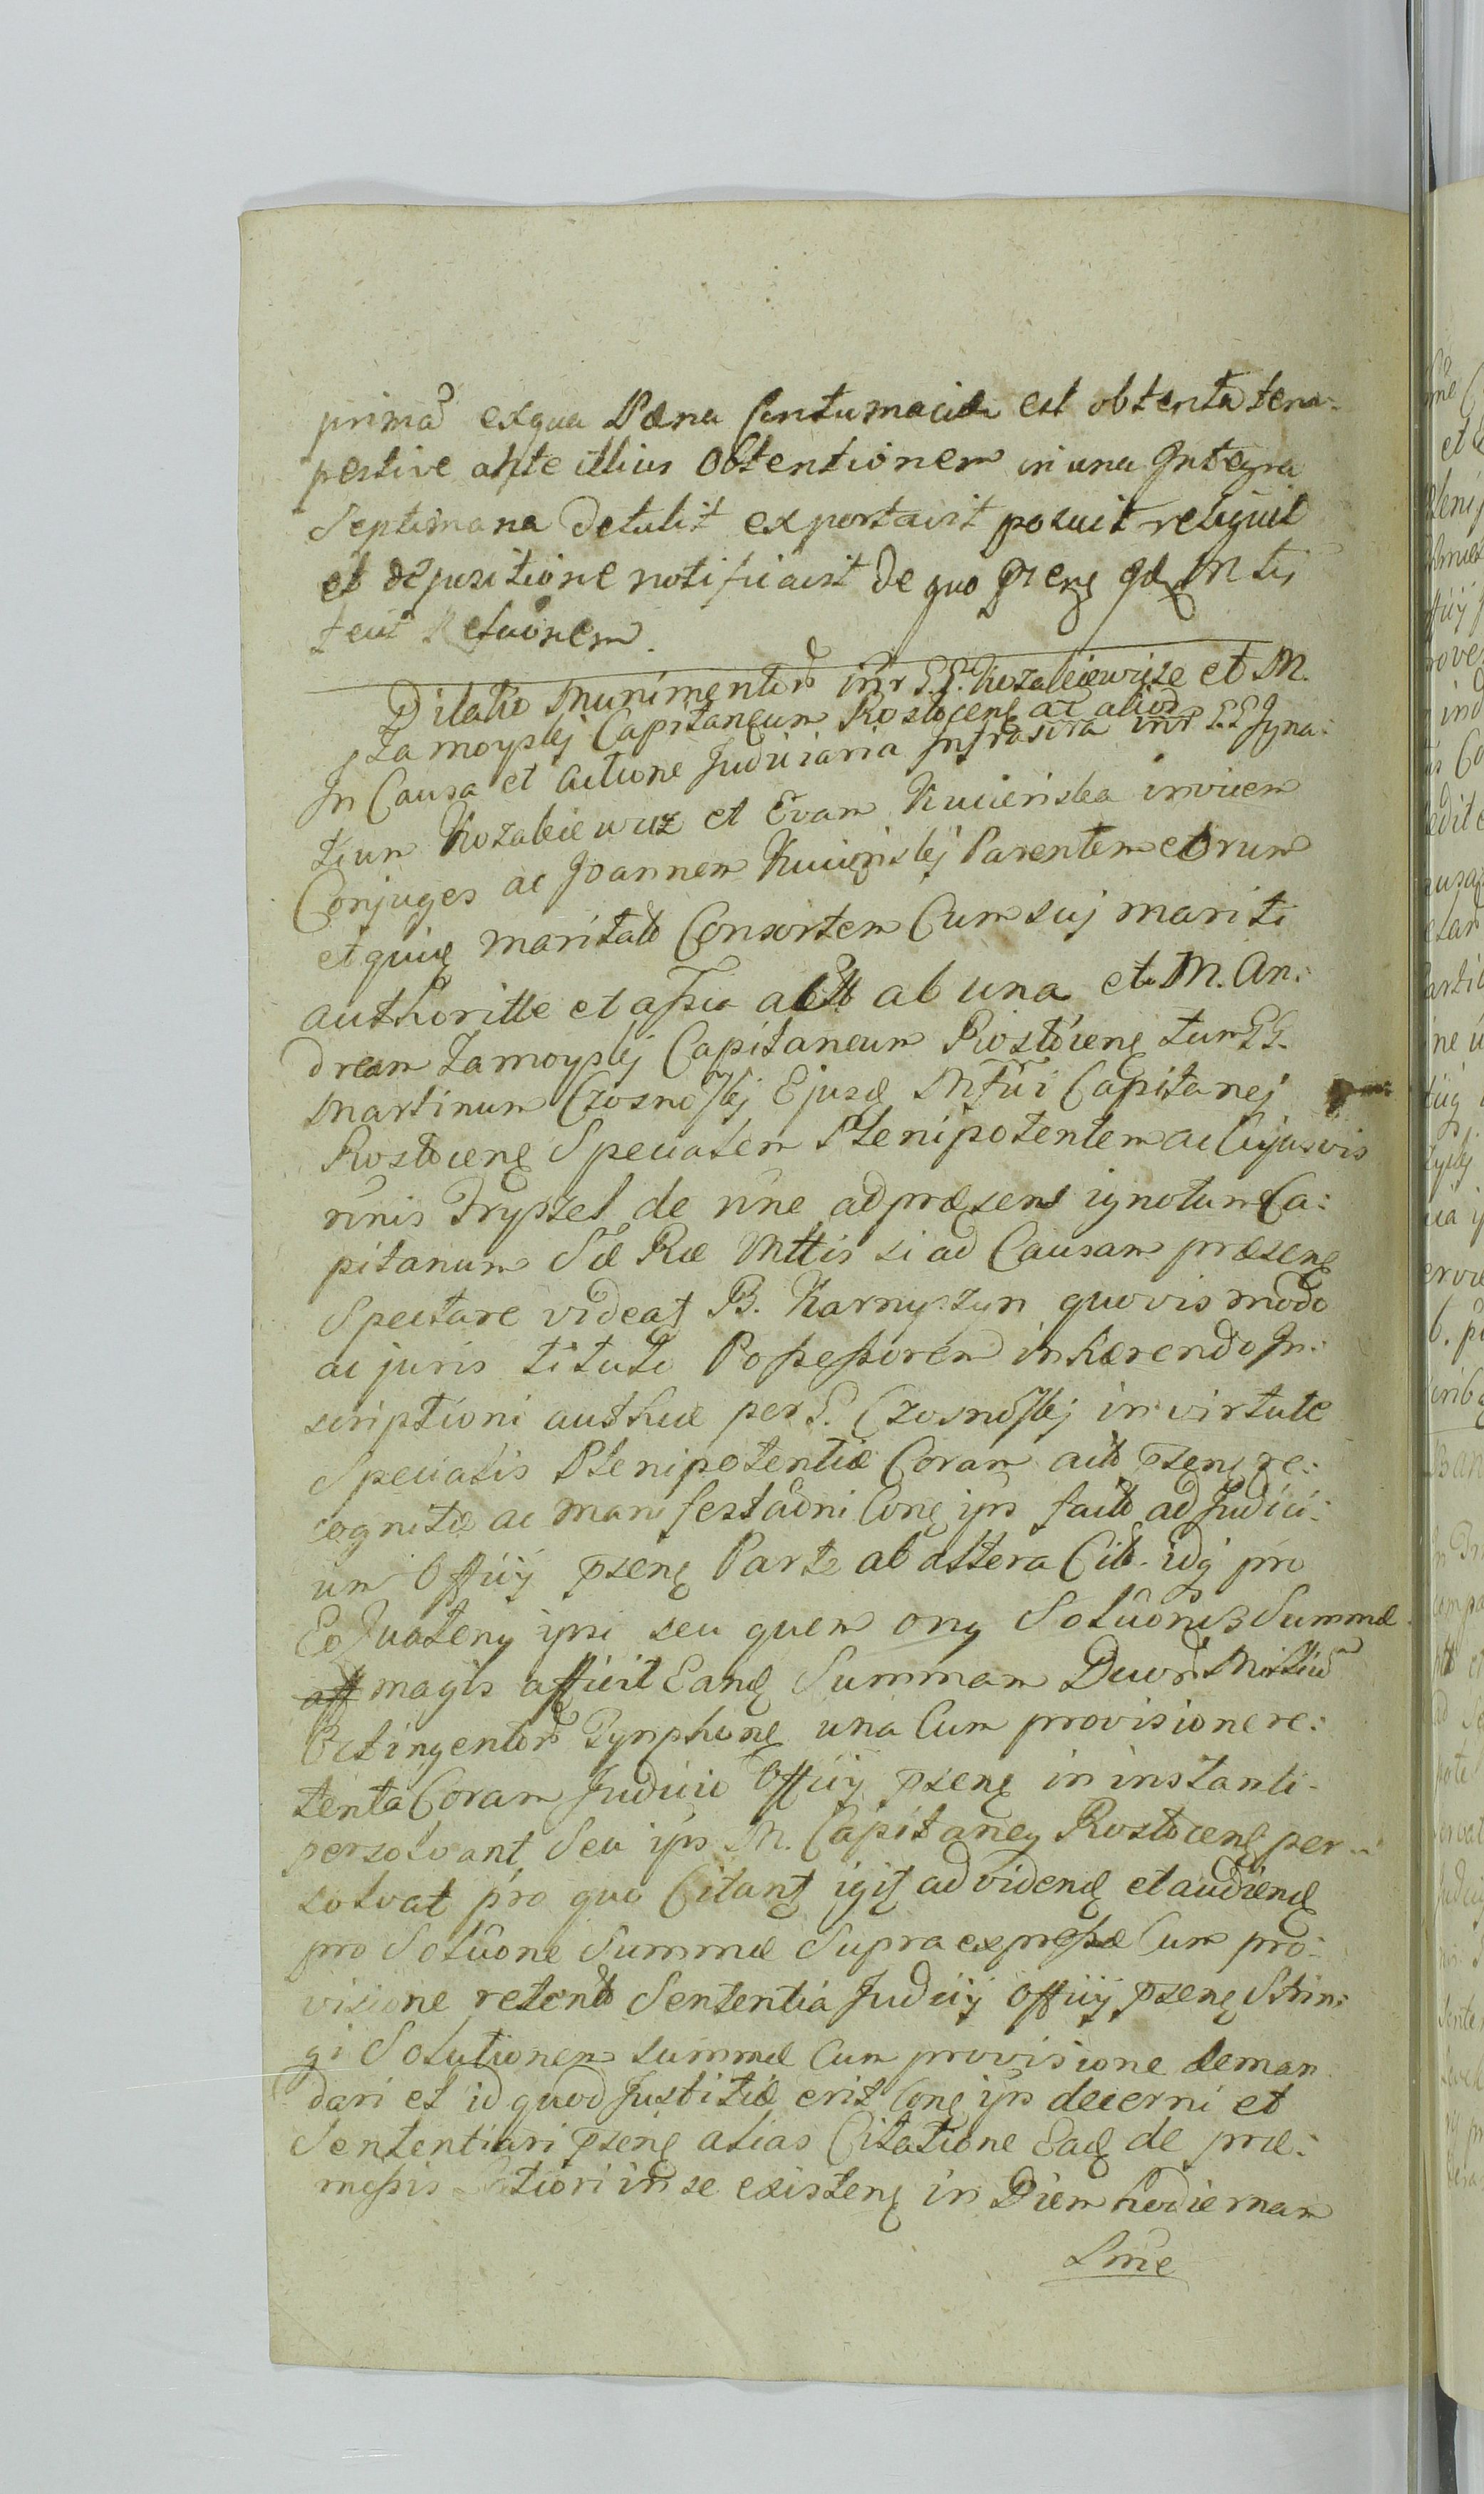 prima exqua Pæna Contumaciæ est obtenta tem:
pestive ante illius Obtentionem in una Integra
Septimana detulit exportavit posuit reliquit
et depositione notificavit de quo præns
fecit Relaõnem.
Dilatio Munimentor inr G.G. Kozakiewicze et M.
Zamoyskj Capitaneum Rostocens ac alios
In Causa et actione Judiciaria Infrascra inr G.G. Igna:
tium Kozakiewicz et Evam Kucieńska invicem
Conjuges ac Joannem Kucieńskj Parentem eorum
et quius maritalo Consortem Cum suj mariti
authoritte et assia ab una et M. An:
dream Zamoyskj Capitaneum Rostocens tum G.G.
Martinum Czosnowskj Ejusd Mfci Capitanej
Rostocens Specialem Plenipotentem ac Cujusvis
nínis Fryszel de níne adpræsens ignotum Ca:
pitanum Sæ Ræ Mttis si ad Causam præsens
Spectare videat B. Karnyszyn quovis modo
ac juris titulo Possessorem inhærendo In:
scriptioni authcæ per G. Czosnowskj in virtute
Specialis Plenipotentiæ Coram acto pzens re:
cognitæ ac manifestaõni Cone ips facto ad Judici:
um Offcij pzens Parte ab altera Cit. idq pro
Eo Quateny ipsi seu quem ony Soluõnis Summæ
aff magis afficit Eand Summam Duor Millium
Octingentor Tynphone una Cum provisione re:
tenta Coram Judicio Offcij pzens in instanti
persolvant Seu ips M. Capitaney Rostocens per:
solvat pro quo Citant igit ad vidend et audiend
pro Soluõne Summæ Supra expressæ Cum pro:
visione retento Sententia Judicij Offcij pzens Strin:
gi Solutionem summæ Cum provisione deman
dari et id quod Justitiæ erit Cone ips decerni et
Sententiari pzens alias Citatione Ead de præ:
missis Latiori in se existens in Diem hodiernam
Lme